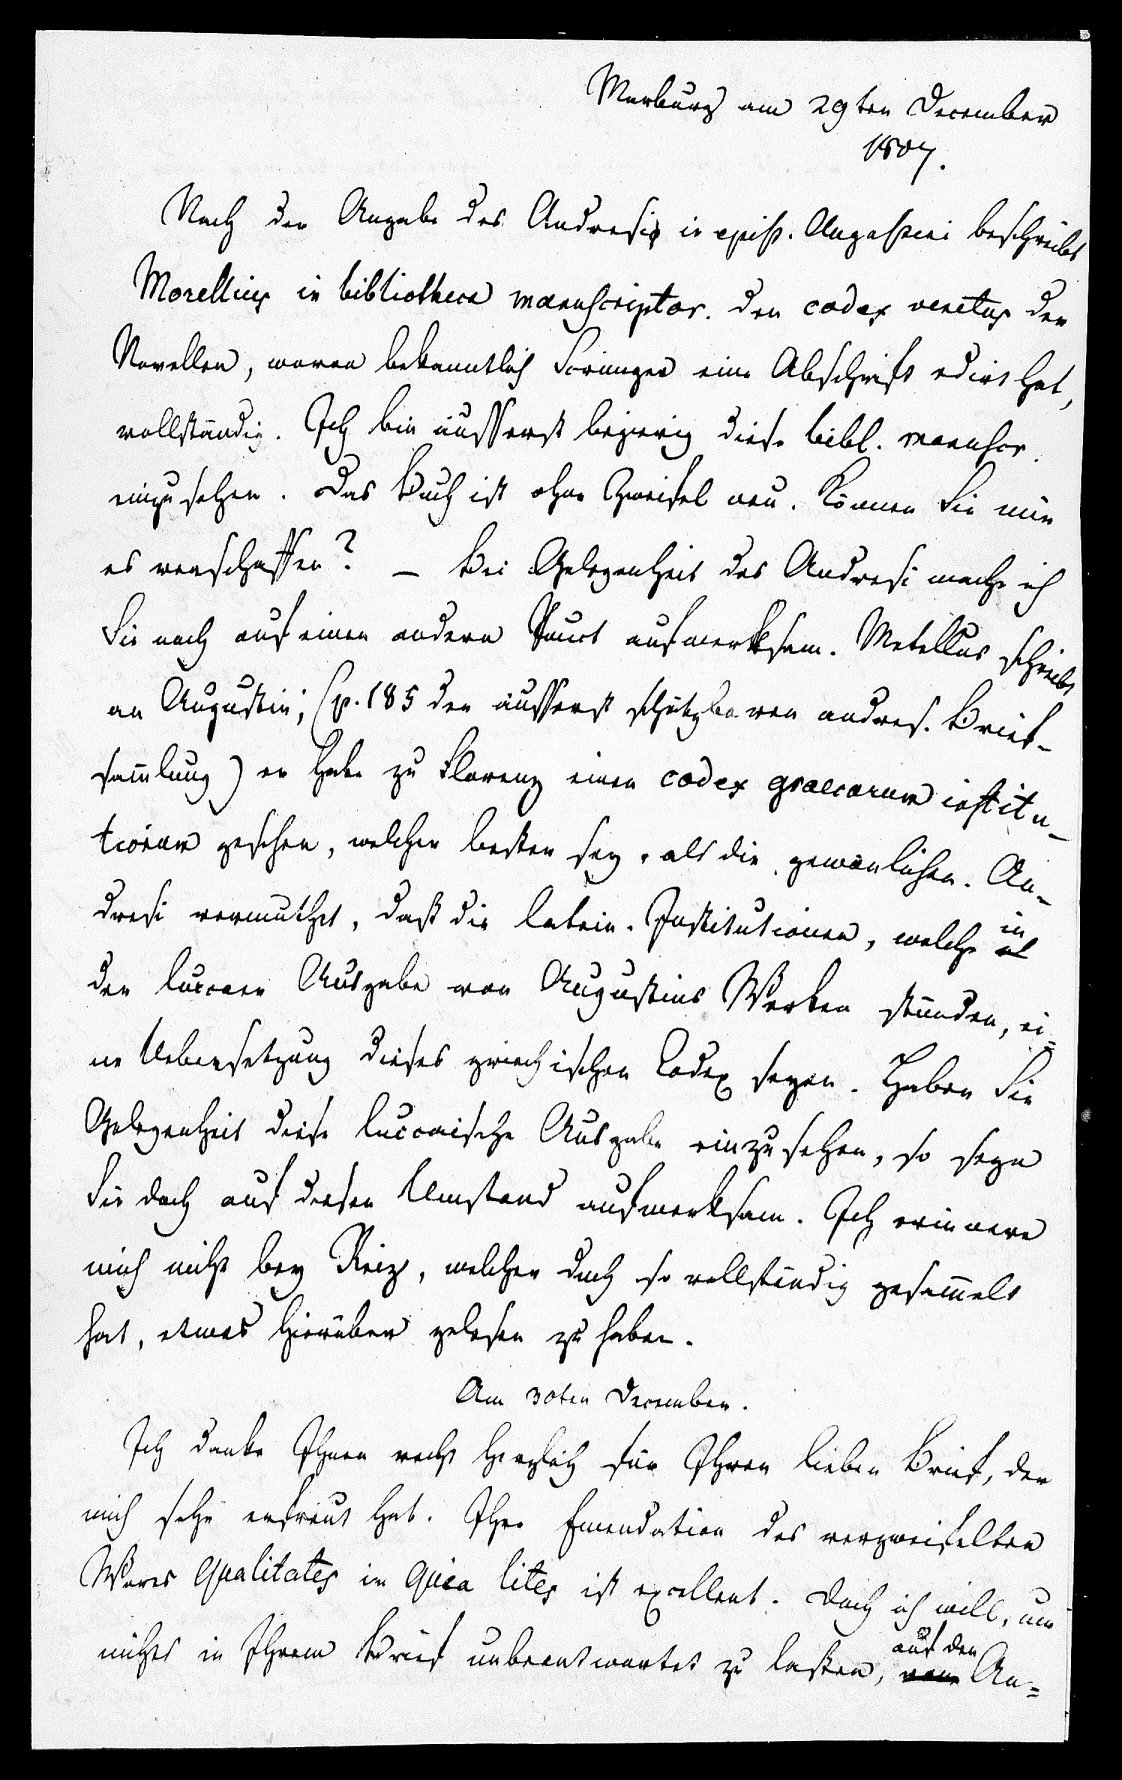 Marburg am 29ten December
1807.
Nach der Angabe des Andresi in epist. Augustini beschreibt
Morellius in bibliotheca manuscriptor. den codex venetus der
Novellen, wovon bekanntlich Scrimger eine Abschrift edirt hat,
vollständig. Ich bin äusserst begierig diese bibl. manuscr.
einzusehen. Das Buch ist ohne Zweifel neu. Können Sie mir
es verschaffen? – Bei Gelegenheit des Andresi mache ich
Sie noch auf einen andern Punct aufmerksam. Metellus schreibt
an Augustin; (p. 185 der äusserst schätzbaren andres. Brief-
sammlung) er habe zu Florenz einen codex graecarum institu-
tionum gesehen, welcher besser sey, als die gewönlichen. An-
dresi vermuthet, daß die latein. Institutionen, welche in
der luccaer Ausgabe von Augustins Werken stünden, ei-
ne Uebersetzung dieses griechischen Codex seyen. Haben Sie
Gelegenheit diese luccaische Ausgabe einzusehen, so seyn
Sie doch auf diesen Umstand aufmerksam. Ich erinnere
mich nicht bey Reiz, welcher doch so vollständig gesammelt
hat, etwas hierüber gelesen zu haben.
Am 30ten December.
Ich danke Ihnen recht herzlich für Ihren lieben Brief, der
mich sehr erfreut hat. Ihre Emendation des verzweifelten
Wortes qualitates in quia lites ist excellent. Doch ich will, um
nichts in Ihrem Brief unbeantwortet zu lassen, auf den An=